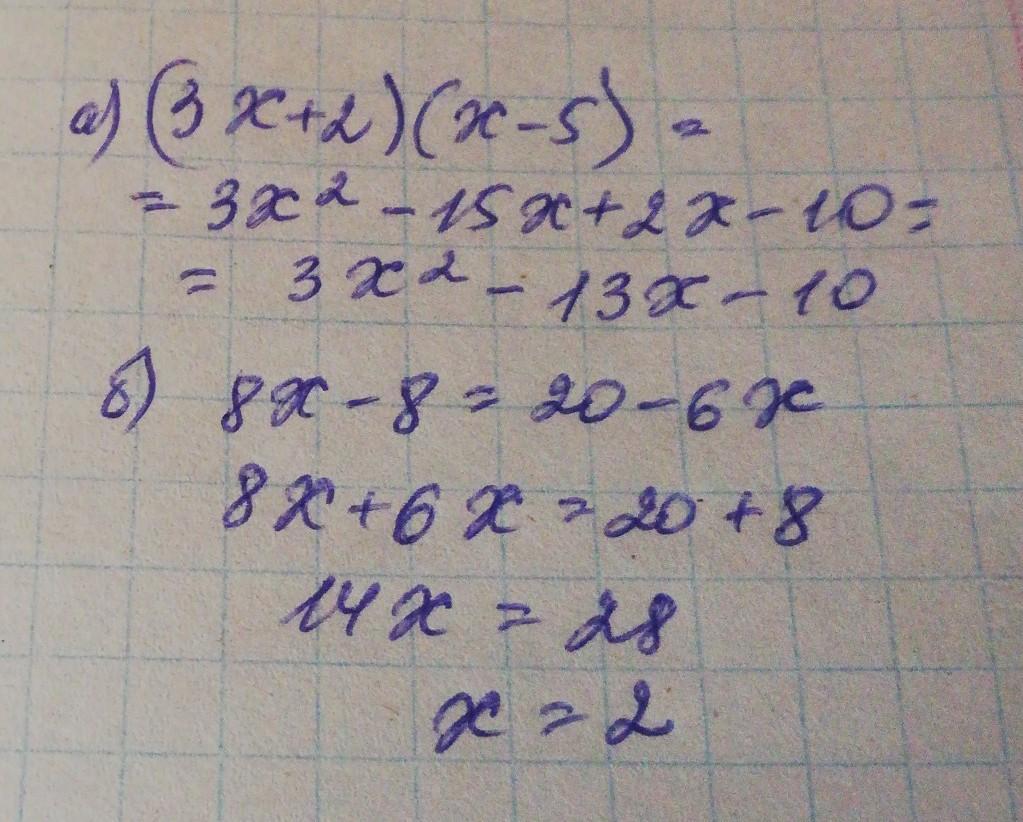 а) (3x+2)(x-5) =
= 3x² - 15x + 2x - 10 =
= 3x² - 13x - 10
б) 8x - 8 = 20 - 6x
8x + 6x = 20 + 8
14x = 28
x = 2